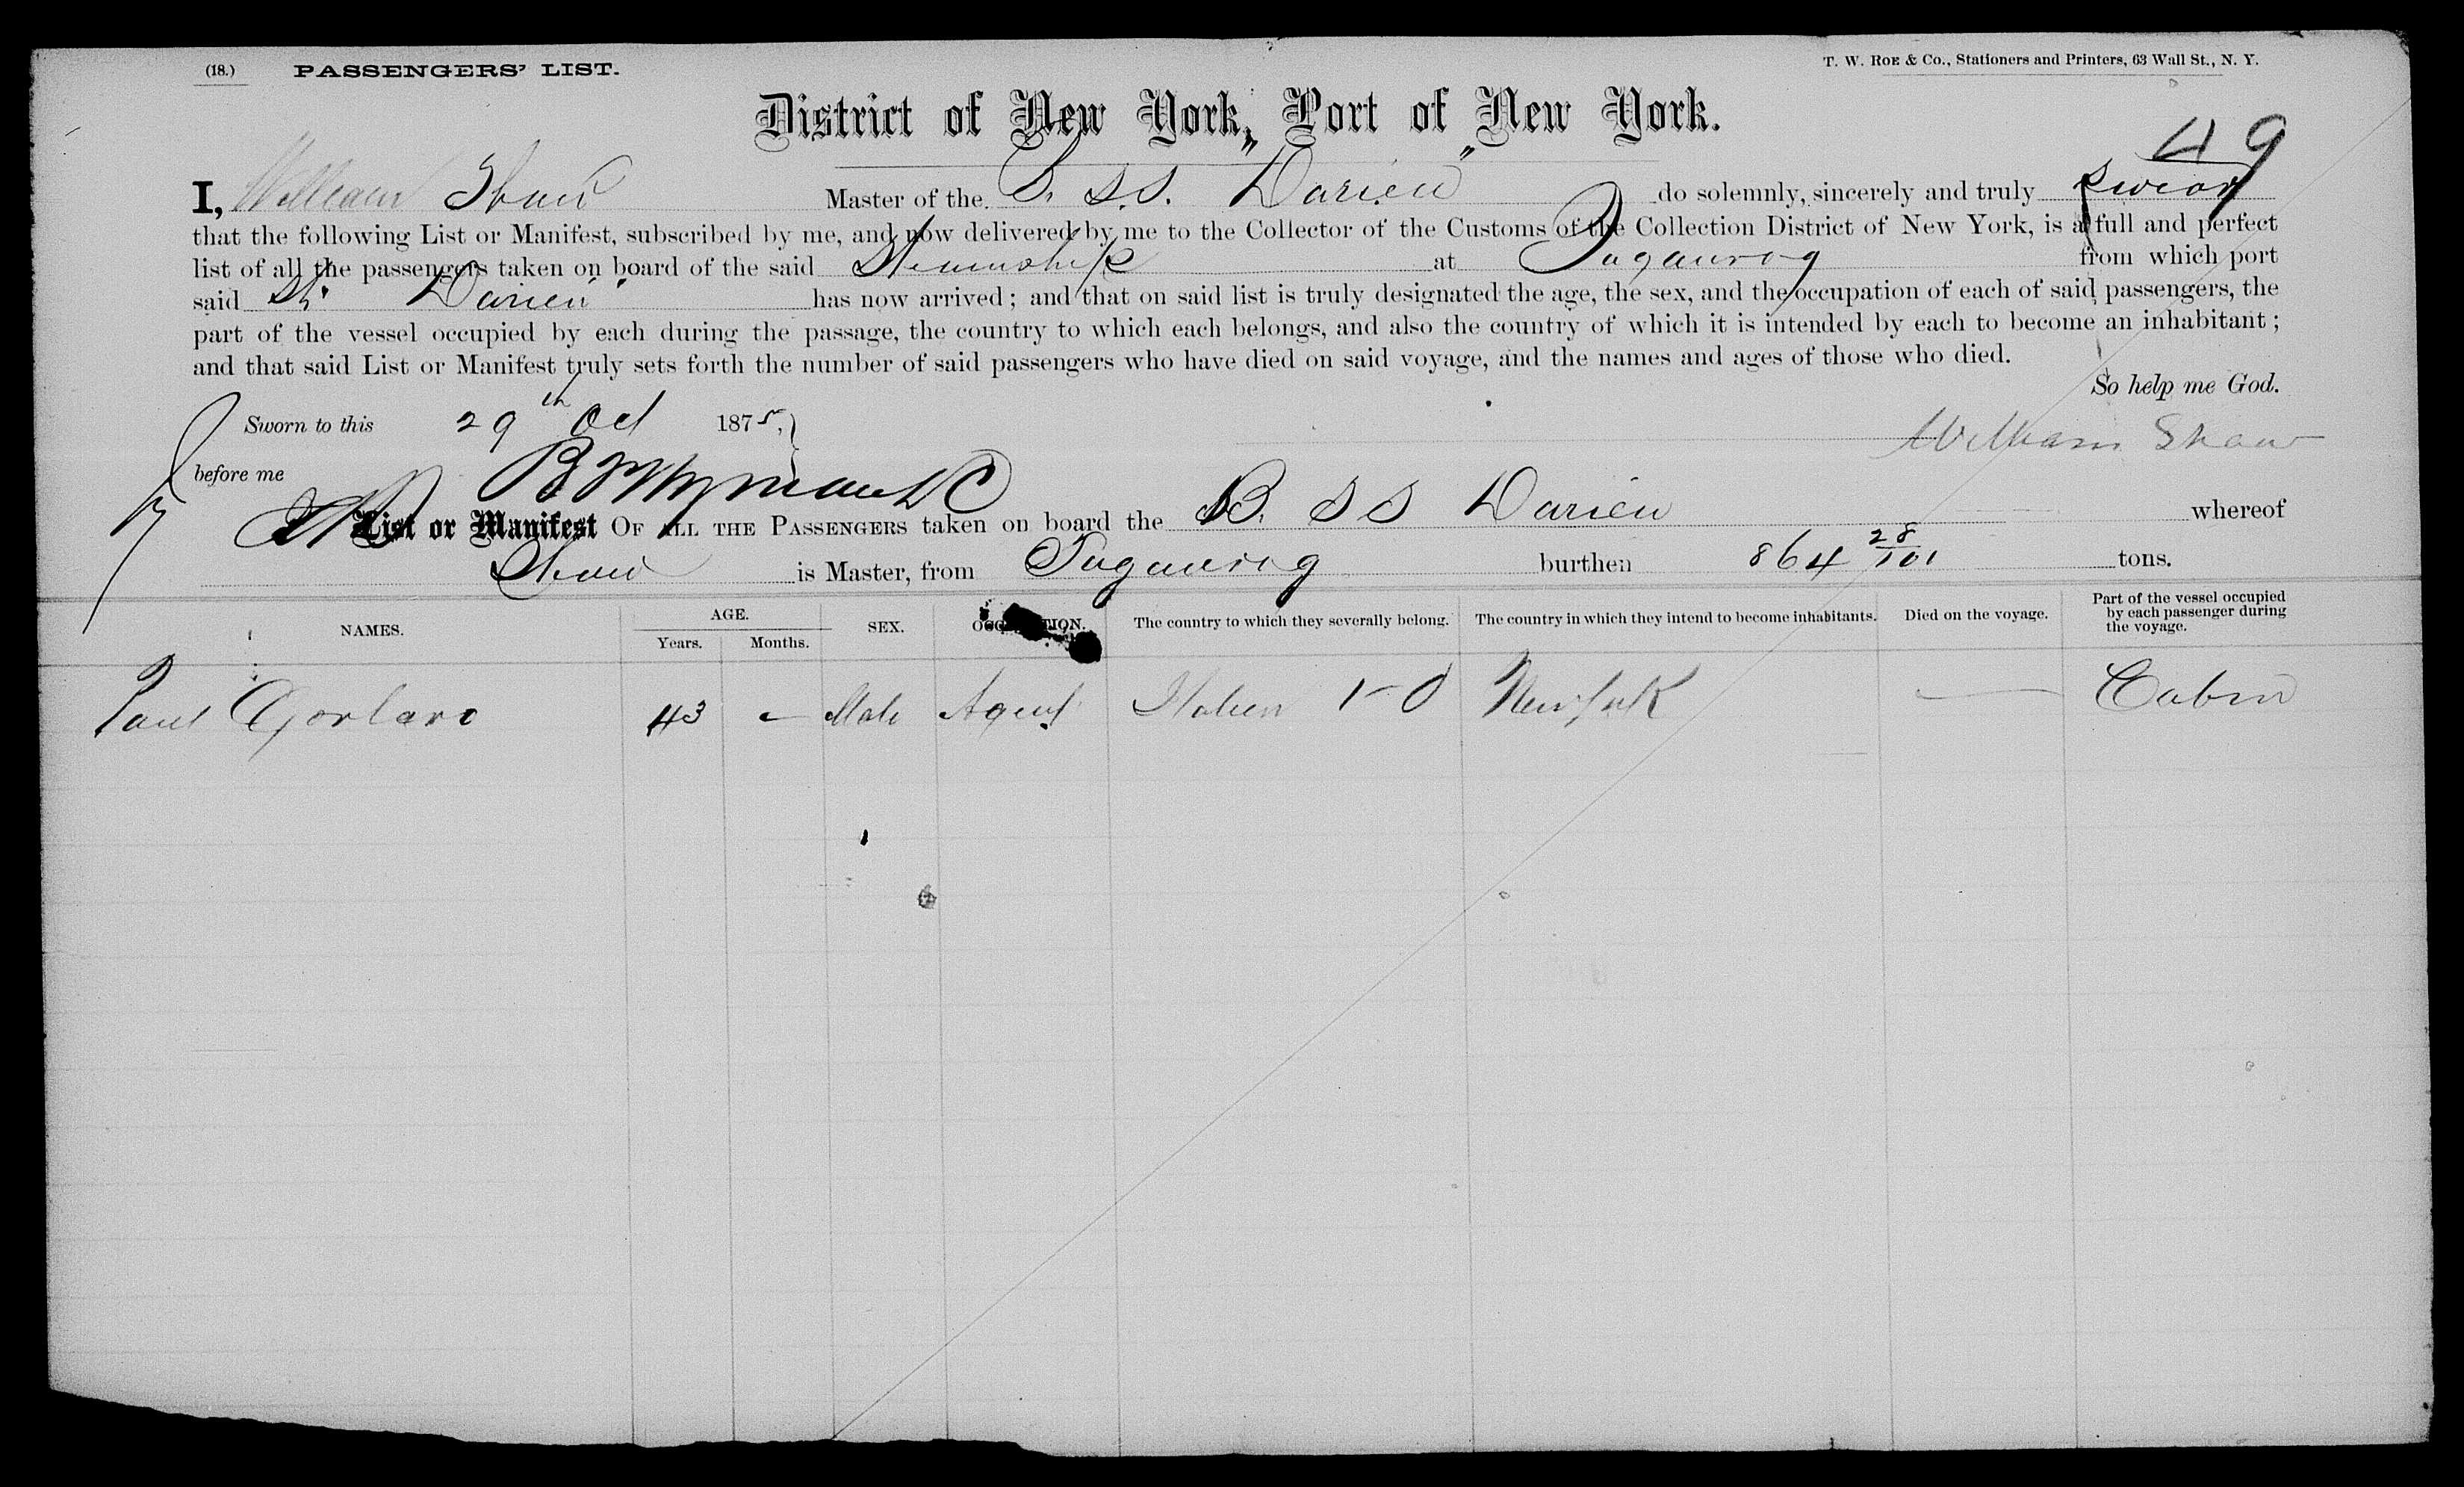 (18.) PASSENGERS' LIST. T. W. ROE & Co., Stationers and Printers, 63 Wall St., N. Y.
District of New York, Port of New York.
49
I, William Shaw Master of the B. S.S. "Darien" do solemnly, sincerely and truly swear
that the following List or Manifest, subscribed by me, and now delivered by me to the Collector of the Customs of the Collection District of New York, is a full and perfect
list of all the passengers taken on board of the said Steamship at Taganrog from which port
said Str. "Darien" has now arrived; and that on said list is truly designated the age, the sex, and the occupation of each of said passengers, the
part of the vessel occupied by each during the passage, the country to which each belongs, and also the country of which it is intended by each to become an inhabitant;
and that said List or Manifest truly sets forth the number of said passengers who have died on said voyage, and the names and ages of those who died.
So help me God.
Sworn to this 29th Oct 1875, William Shaw
before me
List or Manifest OF ALL THE PASSENGERS taken on board the B. S S Darien whereof
Shaw is Master, from Taganrog burthen 864 28/101 tons.
NAMES. AGE. Years. Months. SEX. OCCUPATION. The country to which they severally belong. The country in which they intend to become inhabitants. Died on the voyage. Part of the vessel occupied by each passenger during the voyage.
Paul Gorlaro 43 – Male Agent Italien New York — Cabin